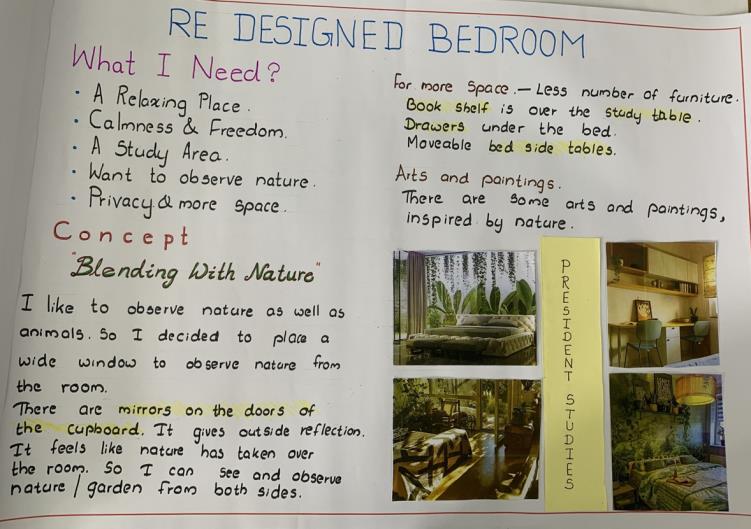 RE DESIGNED BEDROOM
What I Need?
• A Relaxing Place.
• Calmness & Freedom.
• A Study Area.
• Want to observe nature.
• Privacy & more space.
Concept
"Blending With Nature"
I like to observe nature as well as
animals. So I decided to place a
wide window to observe nature from
the room.
There are mirrors on the doors of
the cupboard. It gives outside reflection.
It feels like nature has taken over
the room. So I can see and observe
nature / garden from both sides.
For more Space. — Less number of furniture.
Book shelf is over the study table.
Drawers under the bed.
Moveable bed side tables.
Arts and paintings.
There are some arts and paintings,
inspired by nature.
PRESIDENT STUDIES